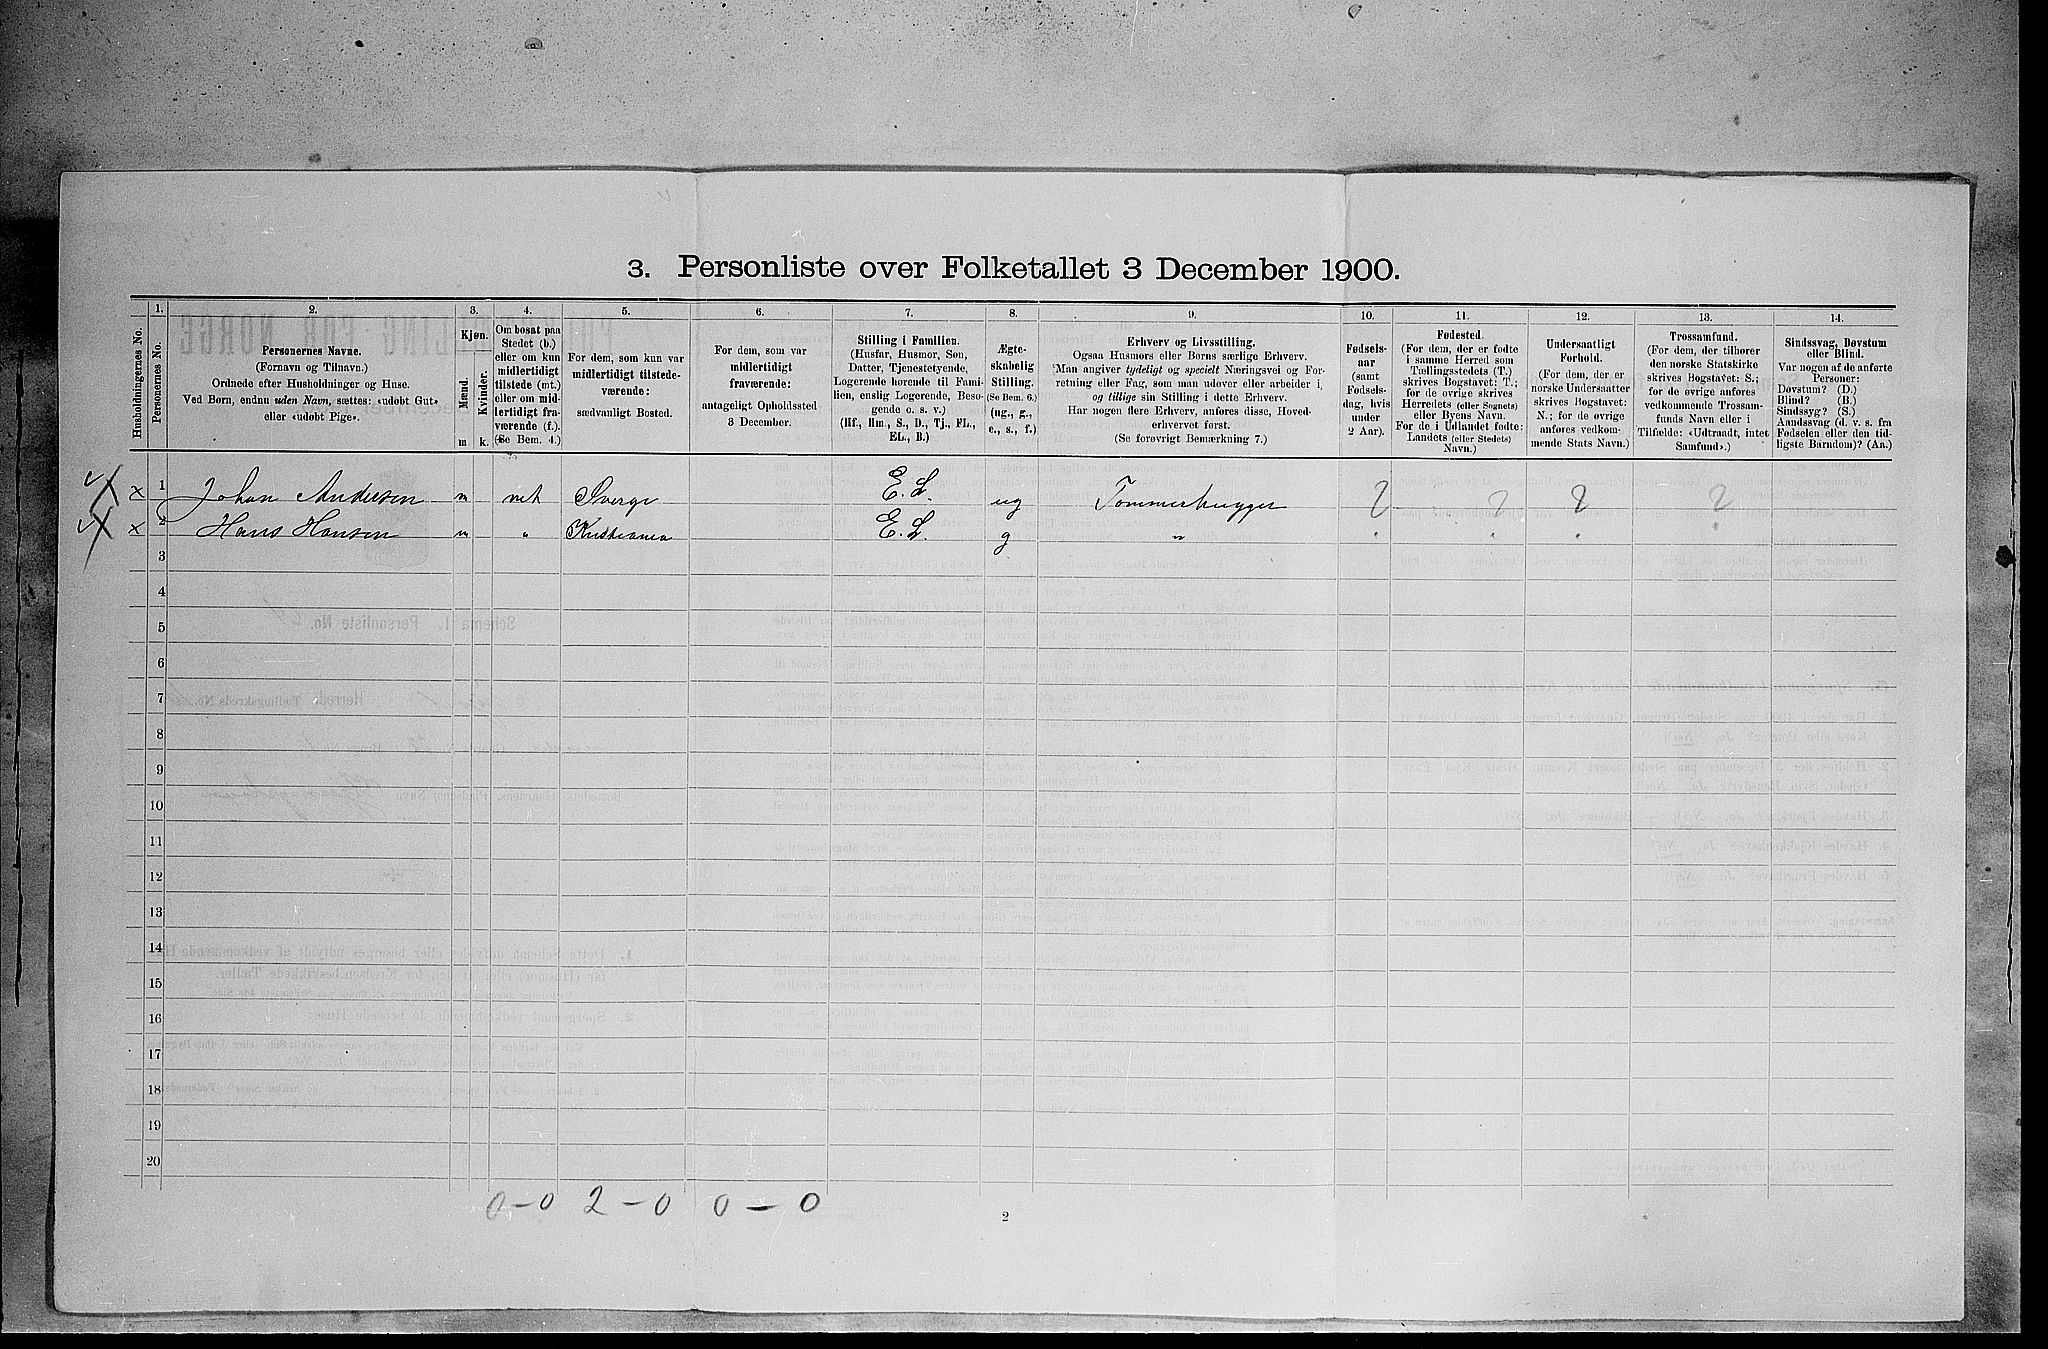 3. Personliste over Folketallet 3 December 1900.
Husholdningernes No.
1.
Personernes No.
2.
Personernes Navne.
(Fornavn og Tilnavn.)
Ordnede efter Husholdninger og Huse.
Ved Børn, endnu uden Navn, sættes: «udøbt Gut»
eller «udøbt Pige».
3.
Kjøn.
Mænd.
Kvinder.
m
k.
4.
Om bosat paa
Stedet (b.)
eller om kun
midlertidigt
tilstede (mt.)
eller om mid-
lertidigt fra-
værende (f.).
(Se Bem. 4.)
5.
For dem, som kun var
midlertidigt tilstede-
værende:
sædvanligt Bosted.
6.
For dem, som var
midlertidigt
fraværende:
antageligt Opholdssted
3 December.
7.
Stilling i Familien.
(Husfar, Husmor, Søn,
Datter, Tjenestetyende,
Logerende hørende til Fami-
lien, enslig Logerende, Besø-
gende o. s. v.)
(Hf., Hm., S., D., Tj., FL.,
EL., B.)
8.
Ægte-
skabelig
Stilling.
(Se Bem. 6.)
(ug., g.,
e., s., f.)
9.
Erhverv og Livsstilling.
Ogsaa Husmors eller Børns særlige Erhverv.
Man angiver tydeligt og specielt Næringsvei og For-
retning eller Fag, som man udøver eller arbeider i,
og tillige sin Stilling i dette Erhverv.
Har nogen flere Erhverv, anføres disse, Hoved-
erhvervet først.
(Se forøvrigt Bemærkning 7.)
10.
Fødsels-
aar
(samt
Fødsels-
dag, hvis
under
2 Aar).
11.
Fødested.
(For dem, der er fødte
i samme Herred som
Tællingsstedets (T.)
skrives Bogstavet: T.;
for de øvrige skrives
Herredets (eller Sognets)
eller Byens Navn.
For de i Udlandet fødte:
Landets (eller Stedets)
Navn.)
12.
Undersaatligt
Forhold.
(For dem, der er
norske Undersaatter
skrives Bogstavet:
N.; for de øvrige
anføres vedkom-
mende Stats Navn.)
13.
Trossamfund.
(For dem, der tilhører
den norske Statskirke
skrives Bogstavet: S.;
for de øvrige anføres
vedkommende Trossam-
funds Navn eller i
Tilfælde: «Udtraadt, intet
Samfund».)
14.
Sindssvag, Døvstum
eller Blind.
Var nogen af de anførte
Personer:
Døvstum? (D.)
Blind? (B.)
Sindssyg? (S.)
Aandssvag (d. v. s. fra
Fødselen eller den tid-
ligste Barndom)? (Aa.)
x 1 Johan Andersen m mt Sverge E. L. ug Tømmerhugger ? ? ? ?
x 2 Hans Hansen m " Kristiania E. L. g " " " " "
3
4
5
6
7
8
9
10
11
12
13
14
15
16
17
18
19
20
0-0 2-0 0-0
2